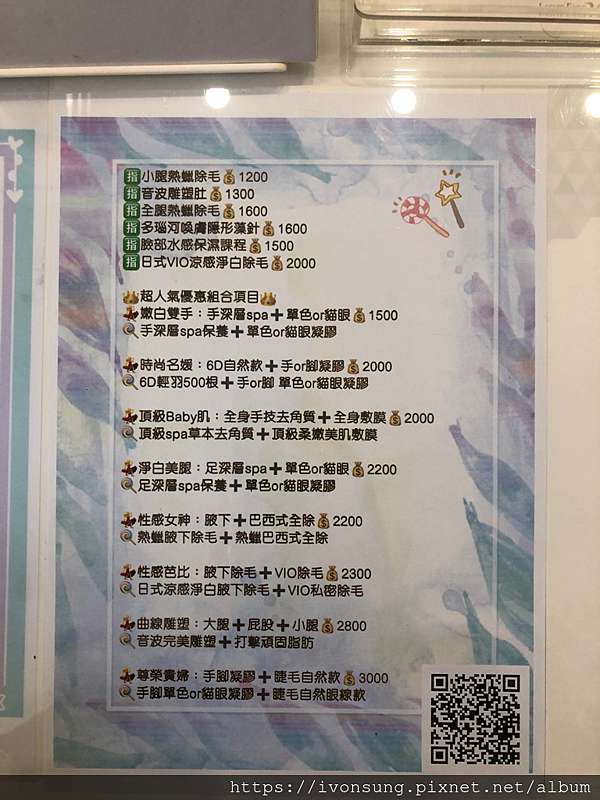 指 小腿熱蠟除毛💰1200
指 音波雕塑肚💰1300
指 全腿熱蠟除毛💰1600
指 多瑙河喚膚隱形藻針💰1600
指 臉部水感保濕課程💰1500
指 日式VIO涼感淨白除毛💰2000
👑超人氣優惠組合項目👑
嫩白雙手：手深層spa➕單色or貓眼💰1500
手深層spa保養➕單色or貓眼凝膠
時尚名媛：6D自然款➕手or腳凝膠💰2000
6D輕羽500根➕手or腳 單色or貓眼凝膠
頂級Baby肌：全身手技去角質➕全身敷膜💰2000
頂級spa草本去角質➕頂級柔嫩美肌敷膜
淨白美腿：足深層spa➕單色or貓眼💰2200
足深層spa保養➕單色or貓眼凝膠
性感女神：腋下➕巴西式全除💰2200
熱蠟腋下除毛➕熱蠟巴西式全除
性感芭比：腋下除毛➕VIO除毛💰2300
日式涼感淨白腋下除毛➕VIO私密除毛
曲線雕塑：大腿➕屁股➕小腿💰2800
音波完美雕塑➕打擊頑固脂肪
尊榮貴婦：手腳凝膠➕睫毛自然款💰3000
手腳單色or貓眼凝膠➕睫毛自然眼線款
https://ivonsung.pixnet.net/album